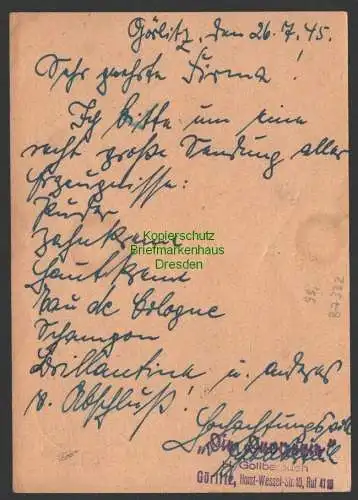 Görlitz, den 26.7.45.
Sehr geehrte Firma!
Ich bitte um eine
recht große Sendung aller
Erzeugnisse:
Puder
Zahnkreme
Hautkreme
Eau de Cologne
Schampon
Brillantine u. anderes
v. Abschluß!
Hochachtungsvoll
"Die Drogerie"
Görlitz, Horst-Wessel-Str. 10, Ruf
Kopierschutz
Briefmarkenhaus
Dresden
87322